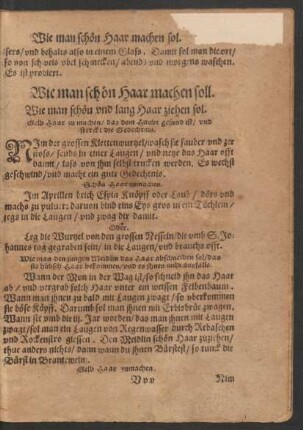 Wie man schön Haar machen sol.
sers/vnd behalts also in einem Glaß. Damit sol man die ort/
so von sich viel vbel schmecken/abends vnd morgens waschen.
Es ist probiert.
Wie man schön Haar machen soll.
Wie man schön vnd lang Haar ziehen sol.
Gelb Haar zu machen/das dem Haubt gesund ist/vnd
sterckt die Gedechtnis.
NIm der grossen Klettenwurtzel/wasch sie sauber vnd zer
/seuds in einer Laugen/vnd netze das Haar offt
damit/laß von jhm selbst trucken werden. Es wechst
geschwind/vnd macht ein gute Gedechtnis.
Schön Haar zumachen.
Im Aprillen brich Espin Knöpff oder Laub/dörs vnd
machs zu puluer: daruon bind eins Eys groß in ein Tüchlein/
legs in die Laugen/vnd zwag dir damit.
Oder.
Leg die Wurtzel von den grossen Nesseln/die vmb S. Jo-
hannes tag gegraben sein/in die Laugen/vnd brauchs offt.
Wie man den jungen Meidlin das Haar abschneiden sol/das
sie hübsch Haar bekommen/vnd es jhnen nit außfalle.
Wann der Mon in der Wag ist/so schneid jhn das Haar
ab/vnd vergrab solch Haar vnter ein weissen Felbenbaum.
Wann man jhnen zu bald mit Laugen zwagt/so vberkommen
sie böse Köpff. Darumb sol man jhnen mit Erbisbrüe zwagen.
Wann sie vmb die Jar worden/das man jhnen mit Laugen
zwagt/sol man ein Laugen von Regenwasser durch Rebaschen
vnd Rockenstro giessen. Den Meidlin schön Haar zuziehen/
thue anders nichts/dann wann du jhnen Bürstest/so tunck die
Bürst in Brantewein.
Gelb Haar zumachen.
Nim